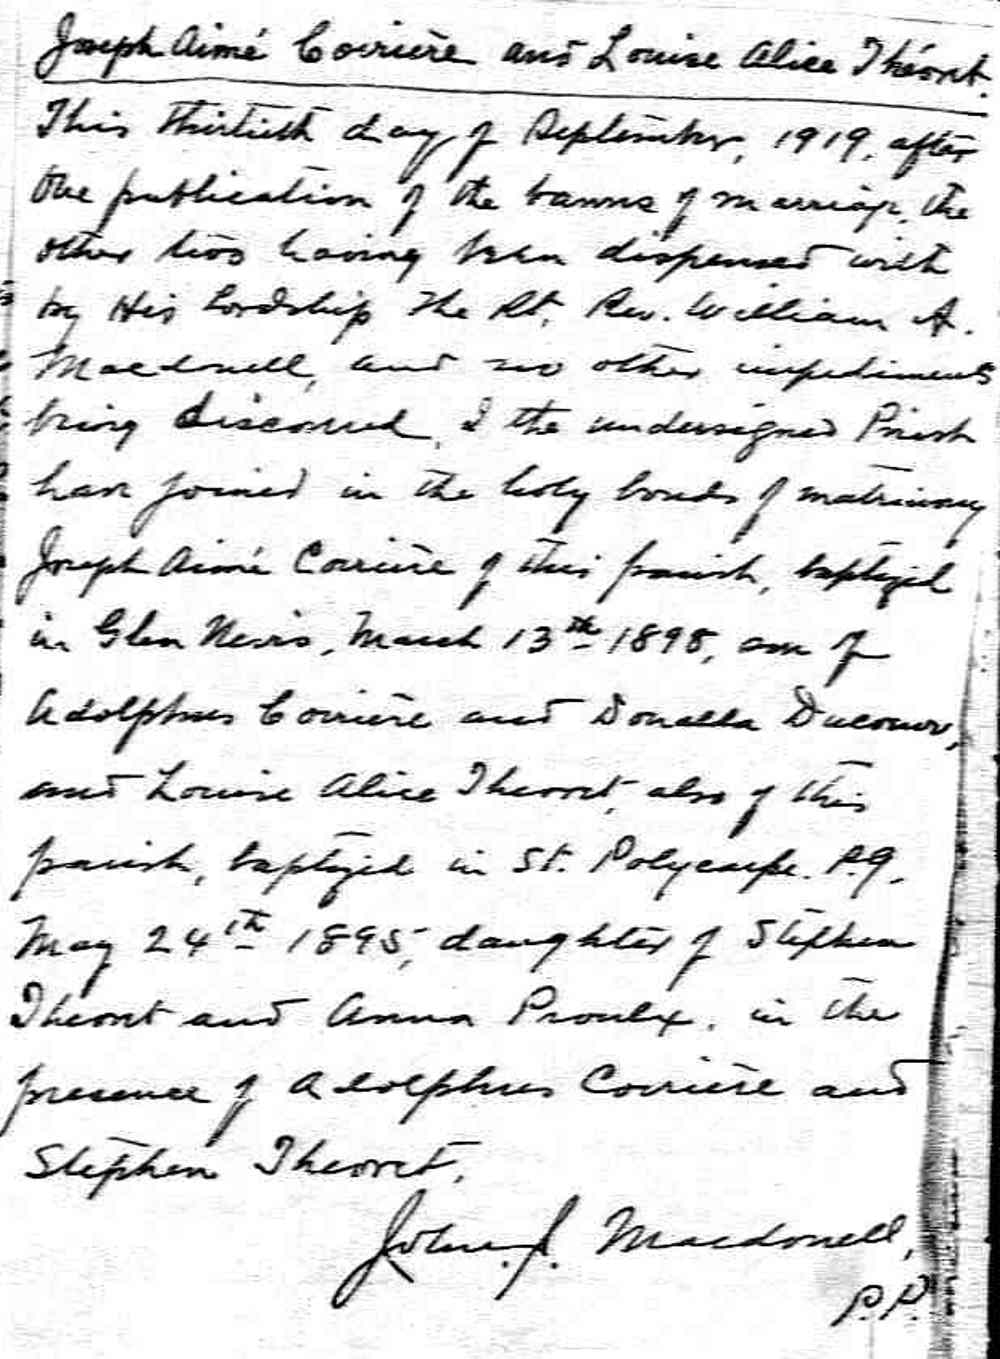 Joseph Aimé Corrière and Louise Alice Théoret.
This thirtieth day of September, 1919, after
the publication of the banns of marriage, the
other two having been dispensed with
by His Lordship The Rt. Rev. William A.
Macdonell, and no other impediments
being discovered, I the undersigned Priest
have joined in the holy bonds of matrimony
Joseph Aimé Corrière of this parish, baptized
in Glen Nevis, March 13th 1898, son of
Adolphus Corrière and Donalda
and Louise Alice Theoret, also of this
parish, baptized in St. Polycarpe. P.Q.
May 24th 1895, daughter of Stephen
Theoret and Anna Proulx, in the
presence of Adolphus Corrière and
Stephen Theoret.
John J. Macdonell,
P.P.